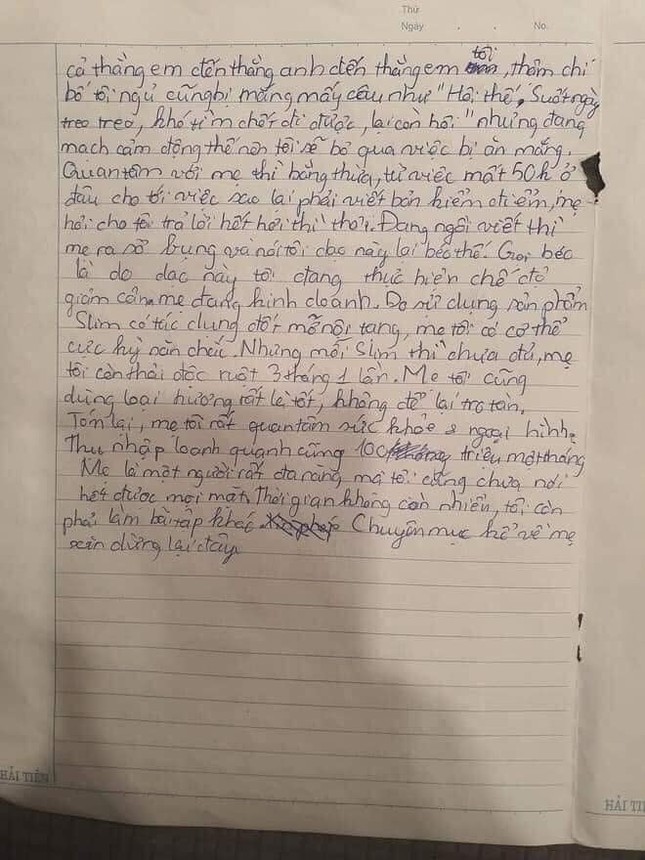 Thứ
Ngày . . No.
cả thằng em đến thằng anh đến thằng em tôi, thậm chí
bố tôi ngủ cũng bị mắng mấy câu như "Hôi thế, Suốt ngày
treo treo, khó tìm chết đi được, lại còn hôi" nhưng đang
mạch cảm động thế nên tôi sẽ bỏ qua việc bị ăn mắng.
Quan tâm với mẹ thì bằng thừa, từ việc mất 50k ở
đâu cho tới việc sao lại phải viết bản kiểm điểm, mẹ
hỏi cho tôi trả lời hết hơi thì thôi. Đang ngồi viết thì
mẹ ra sờ bụng và nói tôi dạo này lại béo thế. Gọi béo
là do dạo này tôi đang thực hiện chế độ
giảm cân mẹ đang kinh doanh. Do sử dụng sản phẩm
Slim có tác dụng đốt mỡ nội tạng, mẹ tôi có cơ thể
cực kỳ săn chắc. Nhưng mỗi Slim thì chưa đủ, mẹ
tôi còn thải độc ruột 3 tháng 1 lần. Mẹ tôi cũng
dùng loại hương rất là tốt, không để lại tro tàn.
Tóm lại, mẹ tôi rất quan tâm sức khỏe & ngoại hình.
Thu nhập loanh quanh cũng 100 triệu một tháng
Mẹ là một người rất đa năng mà tôi cũng chưa nói
hết được mọi mặt. Thời gian không còn nhiều, tôi còn
phải làm bài tập khác. Chuyên mục kể về mẹ
xin dừng lại đây
HẢI TIẾN
HẢI TI